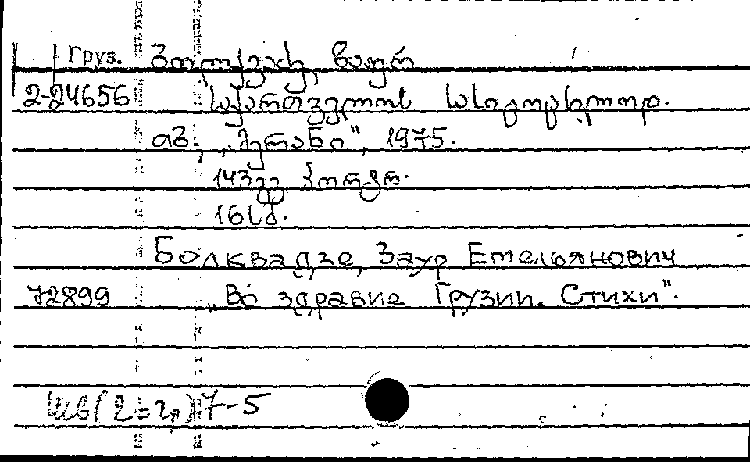 Груз. ბოლქვაძე, ზაურ
2-24656 საქართველოს სადღეგრძელო.
თბ., „მერანი", 1975.
143გვ პორტრ.
16სმ.
Болквадзе, Заур Емельянович
72899 „Во здравие Грузии. Стихи".
7-5